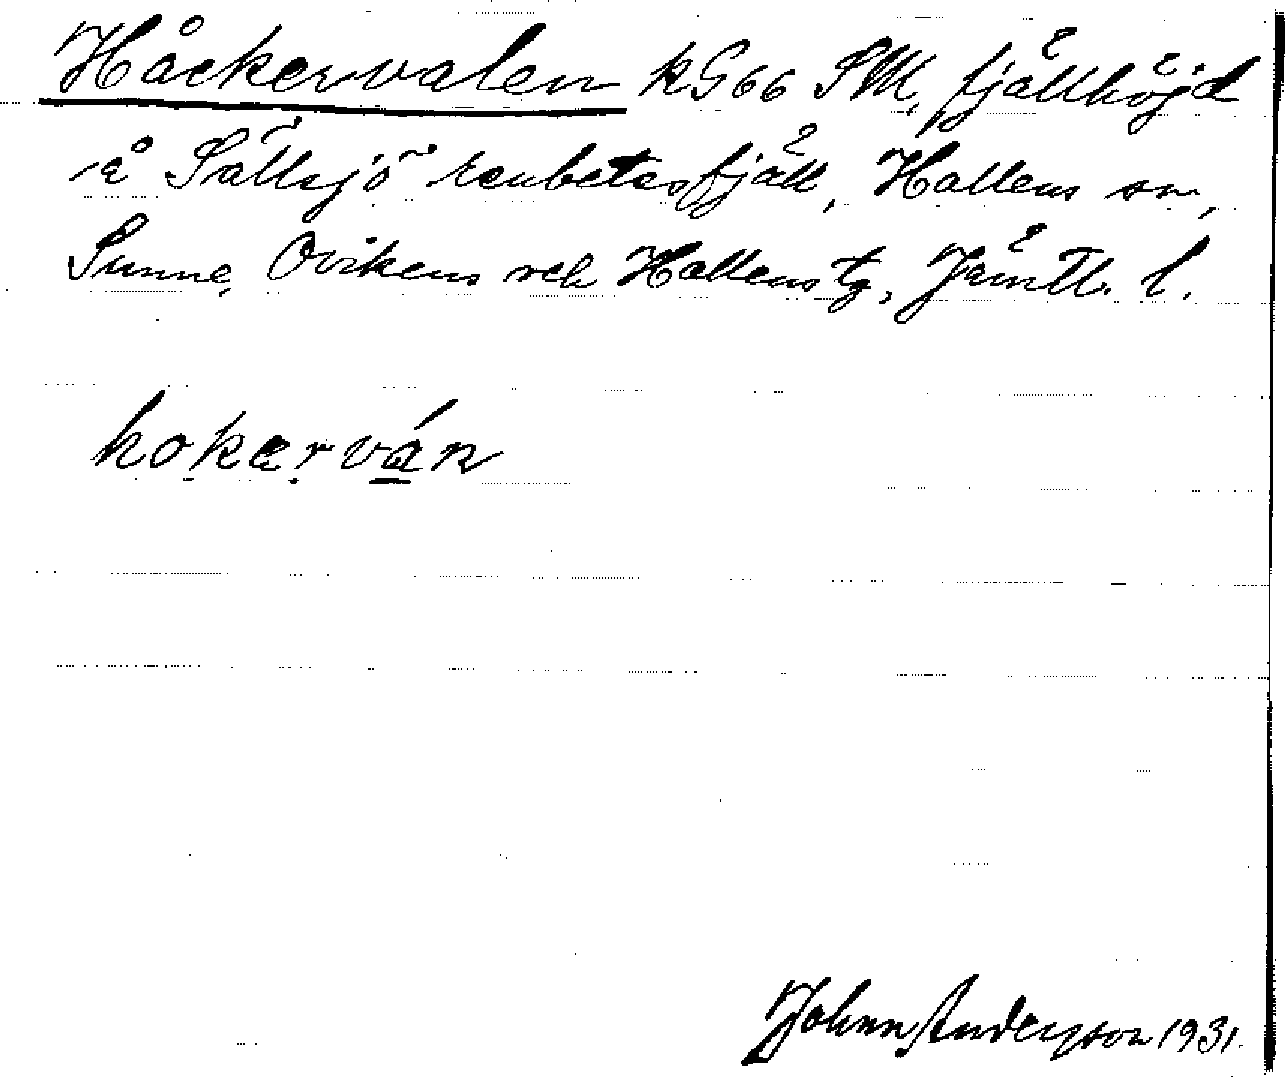 Håckervalen kG66 SV, fjällhöjd
å Sällsjö renbetesfjäll, Hallens sn,
Sunne, Ovikens och Hallens tg, Jämtl. l.
hokərván
Johan Anderson 1931.